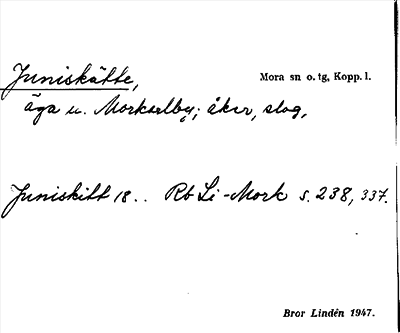 Juniskätte, Mora sn o. tg, Kopp. l.
äga u. Morkarlby; åker, slog,
Juniskitt 18.. Rb Li-Mork s. 238, 337.
Bror Lindén 1947.